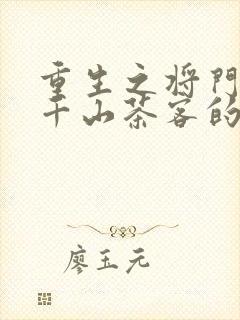 重生之将门
千山茶客的
廖玉元